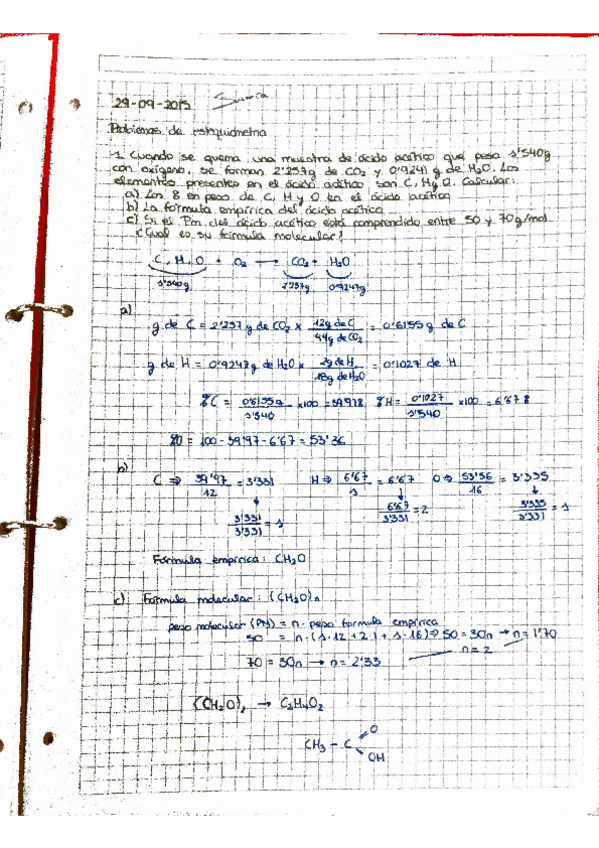 29-09-2015
Problemas de estequiometria
1. Cuando se quema una muestra de ácido acético que pesa 1'540g
con oxígeno, se forman 2'257g de CO₂ y 0'9241 g de H₂O. Los
elementos presentes en el ácido acético son C, H y O. Calcular:
a) Los % en peso de C, H y O en el ácido acético
b) La fórmula empírica del ácido acético
c) Si el Pm del ácido acético está comprendido entre 50 y 70g/mol
¿Cual es su fórmula molecular?
C, H, O + O₂ → CO₂ + H₂O
1'540g 2'257g 0'9247g
a)
g de C = 2'257 g de CO₂ x 12g de C / 44g de CO₂ = 0'6155g de C
g de H = 0'9247g de H₂O x 2g de H / 18g de H₂O = 0'1027 de H
%C = 0'6155g / 1'540 x100 = 39'97% %H = 0'1027 / 1'540 x100 = 6'67%
%O = 100 - 39'97 - 6'67 = 53'36
b)
C ⇒ 39'97 / 12 = 3'331 H ⇒ 6'67 / 1 = 6'67 O ⇒ 53'36 / 16 = 3'335
3'331 / 3'331 = 1 6'67 / 3'331 = 2 3'335 / 3'331 = 1
Fórmula empírica: CH₂O
c) Fórmula molecular: (CH₂O)n
peso molecular (PM) = n · peso formula empírica
50 = n · (1·12 + 2·1 + 1·16) ⇒ 50 = 30n → n = 1'70
n = 2
70 = 30n → n = 2'33
(CH₂O)₂ → C₂H₄O₂
O
CH₃ - C
OH